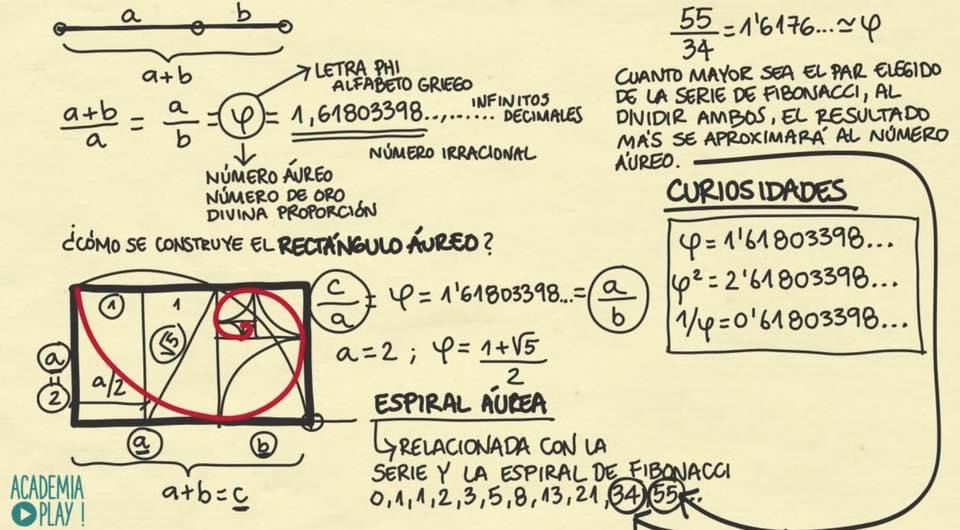 a b
a+b
a+b/a = a/b = φ = 1,61803398..,...... INFINITOS DECIMALES
LETRA PHI
ALFABETO GRIEGO
NÚMERO IRRACIONAL
NÚMERO ÁUREO
NÚMERO DE ORO
DIVINA PROPORCIÓN
¿CÓMO SE CONSTRUYE EL RECTÁNGULO ÁUREO?
1 1
√5
a/2
a
=
2
a b
a+b=c
c/a = φ = 1'61803398...= a/b
a=2 ; φ = 1+√5/2
ESPIRAL ÁUREA
RELACIONADA CON LA
SERIE Y LA ESPIRAL DE FIBONACCI
0,1,1,2,3,5,8,13,21,34,55...
55/34 = 1'6176...≃ φ
CUANTO MAYOR SEA EL PAR ELEGIDO
DE LA SERIE DE FIBONACCI, AL
DIVIDIR AMBOS, EL RESULTADO
MÁS SE APROXIMARÁ AL NÚMERO
ÁUREO.
CURIOSIDADES
φ = 1'61803398...
φ² = 2'61803398...
1/φ = 0'61803398...
ACADEMIA
PLAY!